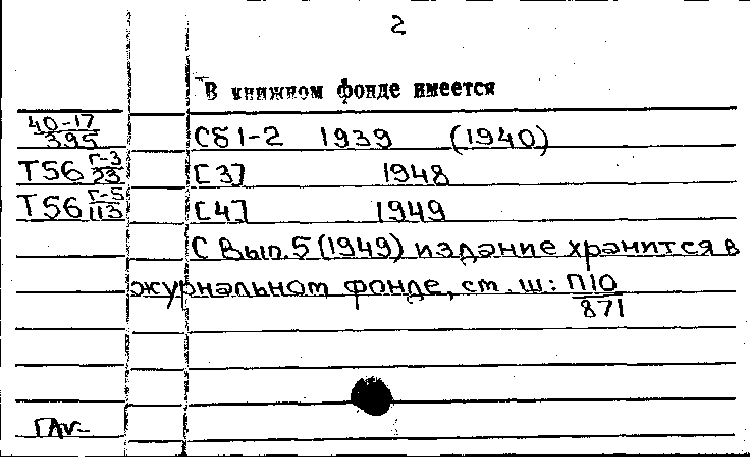 2
В книжном фонде имеется
40-17/395 Сб1-2 1939 (1940)
Т56 Г-3/23 [3] 1948
Т56 Г-5/113 [4] 1949
С Вып.5 (1949) издание хранится в
журнальном фонде, ст. ш: П10/871